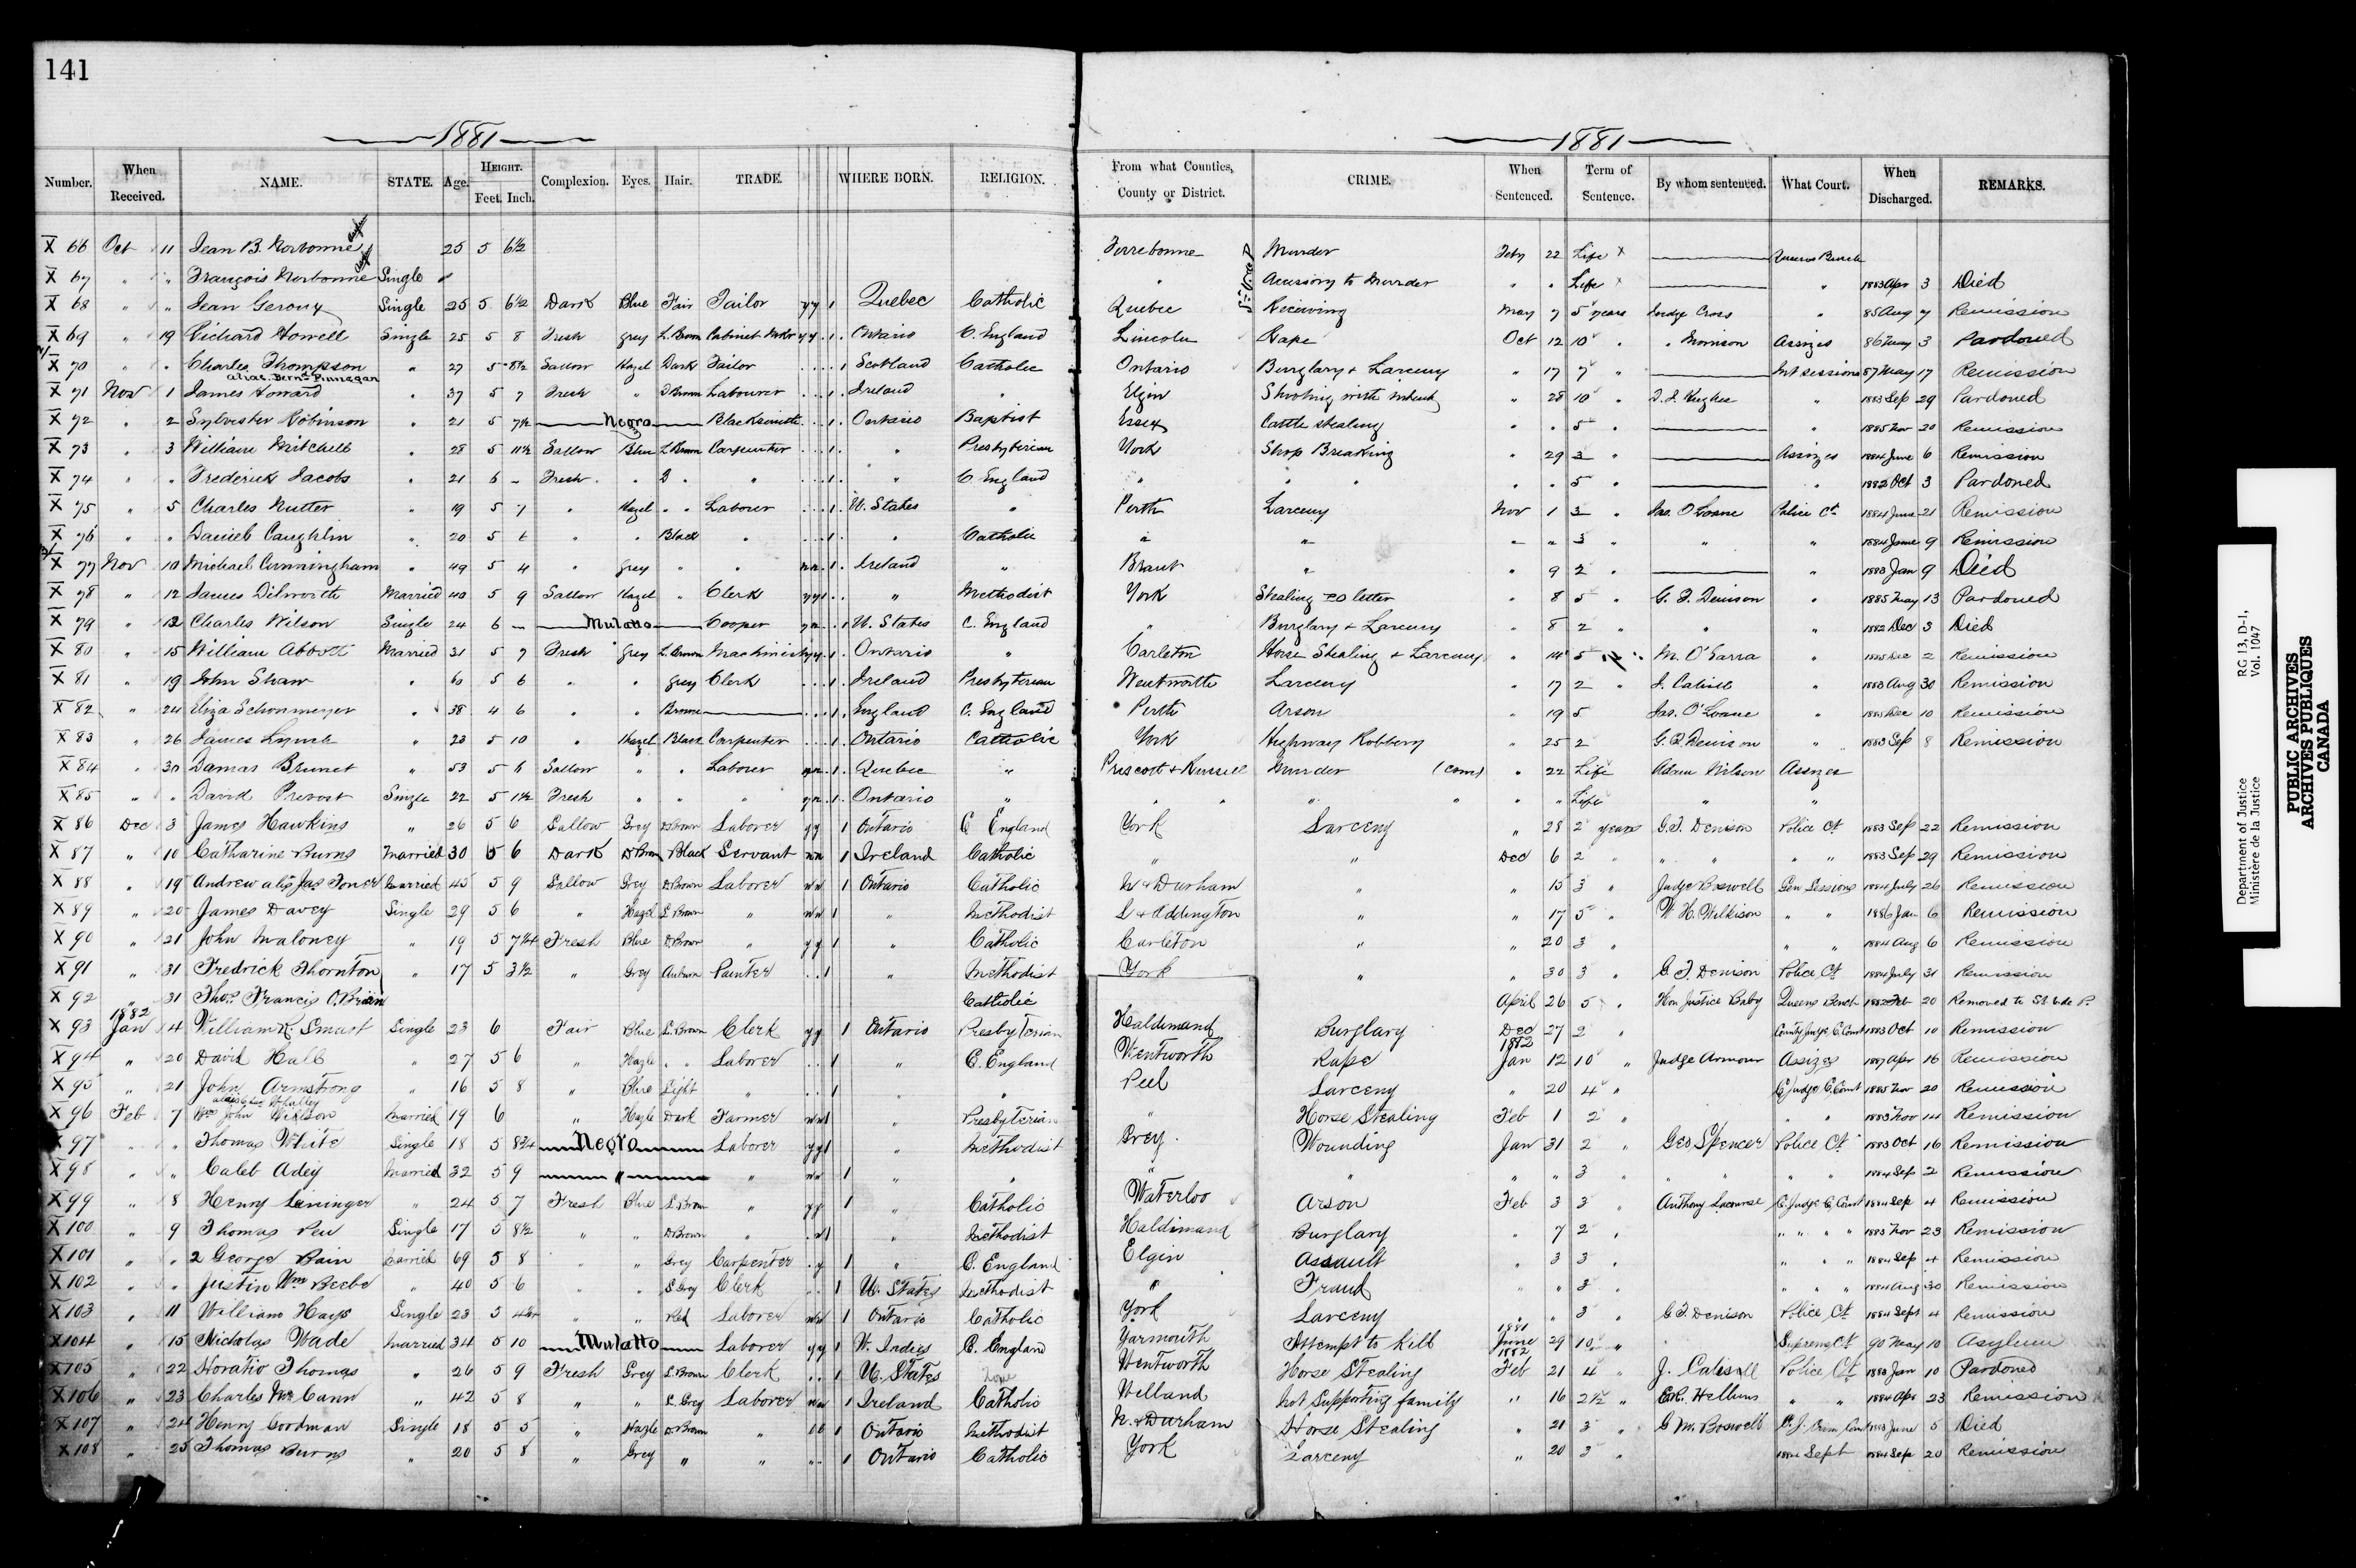 141
1881
1881
Number. When Received. NAME. STATE. Age. HEIGHT. Feet. Inch. Complexion. Eyes. Hair. TRADE. WHERE BORN. RELIGION. From what Counties, County or District. CRIME. When Sentenced. Term of Sentence. By whom sentenced. What Court. When Discharged. REMARKS.
X 66 Oct 11 Jean B. Narbonne 25 5 6½ Terrebonne Murder Feby 22 Life X Queens Bench
X 67 " " François Narbonne Single " Accessory to Murder " " Life X " 1883 Apr 3 Died
X 68 " " Jean Geroux Single 25 5 6½ Dark Blue Fair Tailor y y 1 Quebec Catholic Quebec Receiving May 7 5 years Judge Cross " 85 Aug 7 Remission
X 69 " 19 Richard Howell Single 25 5 8 Fresh Grey L. Brown Cabinet Mkr y y 1 Ontario C. England Lincoln Rape Oct 12 10 " " Morrison Assizes 86 May 3 Pardoned
X 70 " " Charles Thompson " 27 5 8½ Sallow Hazel Dark Tailor 1 Scotland Catholic Ontario Burglary & Larceny " 17 7 " Int sessions 87 May 17 Remission
alias Bern. Finnegan
X 71 Nov 1 James Howard " 37 5 7 Fresh " D Brown Labourer 1 Ireland " Elgin Shooting with intent " 28 10 " D. J. Hughes " 1883 Sep 29 Pardoned
X 72 " 2 Sylvester Robinson " 21 5 7½ Negro Blacksmith 1 Ontario Baptist Essex Cattle stealing " " 5 " " 1885 Nov 20 Remission
X 73 " 3 William Mitchell " 28 5 11½ Sallow Blue L Brown Carpenter 1 " Presbyterian York Shop Breaking " 29 3 " Assizes 1884 June 6 Remission
X 74 " " Frederick Jacobs " 21 6 - Fresh " D " " 1 " C England " " " " 5 " " 1882 Oct 3 Pardoned
X 75 " 5 Charles Nutter " 19 5 7 " Hazel " " Labourer 1 U. States " Perth Larceny Nov 1 3 " Jas. O'Loane Police Ct 1884 June 21 Remission
X 76 " " Daniel Caughlin " 20 5 6 " " Black " 1 " Catholic " " " " 3 " " " 1884 June 9 Remission
X 77 Nov 10 Michael Cunningham " 49 5 4 " Grey " " n n 1 Ireland " Brant " " 9 2 " " 1883 Jan 9 Died
X 78 " 12 James Dilworth Married 40 5 9 Sallow Hazel " Clerk y y 1 " Methodist York Stealing PO letter " 8 5 " G. T. Denison " 1885 May 13 Pardoned
X 79 " 12 Charles Wilson Single 24 6 - Mulatto Cooper y n 1 U. States C. England " Burglary & Larceny " 8 2 " " " 1882 Dec 3 Died
X 80 " 15 William Abbott Married 31 5 7 Fresh Grey L. Brown Machinist y y 1 Ontario " Carleton Horse Stealing & Larceny " 14 5 " M. O'Garra " 1885 Dec 2 Remission
X 81 " 19 John Shaw " 60 5 6 " " Grey Clerk 1 Ireland Presbyterian Wentworth Larceny " 17 2 " J. Cahill " 1883 Aug 30 Remission
X 82 " 24 Eliza Schonmeyer " 38 4 6 " " Brown 1 England C. England Perth Arson " 19 5 Jas. O'Loane " 1885 Dec 10 Remission
X 83 " 26 James Lynch " 23 5 10 " Hazel Black Carpenter 1 Ontario Catholic York Highway Robbery " 25 2 G. T. Denison " 1883 Sep 8 Remission
X 84 " 30 Damas Brunet " 53 5 6 Sallow " " Laborer y n 1 Quebec " Prescott & Russell Murder (com) " 22 Life Adam Wilson Assizes
X 85 " " David Prevost Single 22 5 1½ Fresh " " " y n 1 Ontario " " " " " " " Life " "
X 86 Dec 3 James Hawkins " 26 5 6 Sallow Grey D Brown Laborer y y 1 Ontario C England York Larceny " 28 2 years G. T. Denison Police Ct 1883 Sep 22 Remission
X 87 " 10 Catharine Burns Married 30 5 6 Dark D Brown Black Servant n n 1 Ireland Catholic " " Dec 6 2 " " " " " 1883 Sep 29 Remission
X 88 " 19 Andrew alis Jas Toner Married 45 5 9 Sallow Grey D Brown Laborer n n 1 Ontario Catholic N & Durham " " 15 3 " Judge Boswell Gen Sessions 1884 July 26 Remission
X 89 " 20 James Davey Single 29 5 6 " Hazel L Brown " n n 1 " Methodist L & Addington " " 17 5 " W H. Wilkison " " 1886 Jan 6 Remission
X 90 " 21 John Maloney " 19 5 7¼ Fresh Blue D Brown " y y 1 " Catholic Carleton " " 20 3 " " " 1884 Aug 6 Remission
X 91 " 31 Fredrick Thornton " 17 5 3½ " Grey Auburn Painter 1 " Methodist York " " 30 3 " G T. Denison Police Ct 1884 July 31 Remission
X 92 " 31 Thos. Francis O.Brian Catholic April 26 5 " Hon Justice Baby Queens Bench 1882 Feb 20 Removed to St V de P.
1882
X 93 Jan 4 William R Smart Single 23 6 Fair Blue L. Brown Clerk y y 1 Ontario Presbyterian Haldimand Burglary Dec 27 2 " County Judge C. Court 1883 Oct 10 Remission
1882
X 94 " 20 David Hall " 27 5 6 " Hazle " " Laborer 1 " C. England Wentworth Rape Jan 12 10 " Judge Armour Assizes 1889 Apr 16 Remission
X 95 " 21 John Armstrong " 16 5 8 " Blue Light " 1 " " Peel Larceny " 20 4 " C. Judge C. Court 1885 Nov 20 Remission
X 96 Feb 7 John Willson Married 19 6 " Hazle Dark Farmer n n 1 " Presbyterian " Horse Stealing Feb 1 2 " " " 1883 Nov 14 Remission
X 97 " " Thomas White Single 18 5 8¾ Negro Laborer y y 1 " Methodist Grey Wounding Jan 31 2 " Geo Spencer Police Ct 1883 Oct 16 Remission
X 98 " " Caleb Adey Married 32 5 9 " " n n 1 " " " " " " 3 " " " " 1884 Sep 2 Remission
X 99 " 8 Henry Leininger " 24 5 7 Fresh Blue L. Brown " y y 1 " Catholic Waterloo Arson Feb 3 3 " Anthony Lacourse C. Judge C. Court 1884 Sep 4 Remission
X 100 " 9 Thomas Pew Single 17 5 8½ " " D Brown " " Methodist Haldimand Burglary " 7 2 " " " " 1883 Nov 23 Remission
X 101 " " 2 George Bain Married 69 5 8 " " Grey Carpenter . y 1 " C. England Elgin Assault " 3 3 " " " " 1884 Sep 4 Remission
X 102 " " Justin Wm Beebe " 40 5 6 " " L Grey Clerk 1 U. States Methodist " Fraud " " 3 " " " " 1884 Aug 30 Remission
X 103 " 11 William Hays Single 23 5 " " Red Laborer n n 1 Ontario Catholic York Larceny " " 3 " G T. Denison Police Ct 1884 Sept 4 Remission
1881
X 104 " 15 Nicholas Wade Married 34 5 10 Mulatto Laborer y y 1 W. Indies C. England Yarmouth Attempt to Kill June 29 10 " Supreme Ct 90 May 10 Asylum
1882
X 105 " 22 Horatio Thomas " 26 5 9 Fresh Grey L. Brown Clerk 1 U. States None Wentworth Horse Stealing Feb 21 4 " J. Cahill Police Ct 1883 Jan 10 Pardoned
X 106 " 23 Charles McCann " 42 5 8 " " L. Grey Laborer n n 1 Ireland Catholic Welland Not Supporting family " 16 2½ " Hellems " " 1884 Apr 23 Remission
X 107 " 24 Henry Goodman Single 18 5 5 " Hazle D. Brown " 1 Ontario Methodist N. & Durham Horse Stealing " 21 3 " G M. Boswell 1883 June 5 Died
X 108 " 25 Thomas Burns " 20 5 8 " Grey " " 1 Ontario Catholic York Larceny " 20 3 " 1884 Sept 1884 Sep 20 Remission
Department of Justice
Ministère de la Justice
RG 13, D-1,
Vol. 1047
PUBLIC ARCHIVES
ARCHIVES PUBLIQUES
CANADA